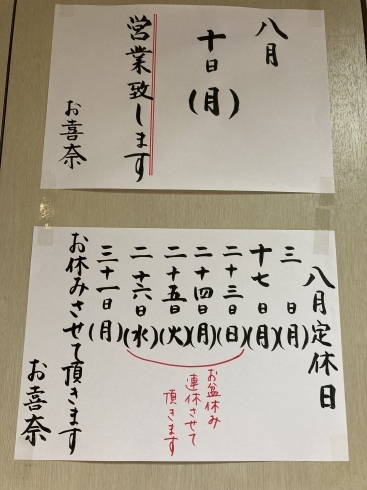 八月
十日(月)
営業致します
お喜奈
八月定休日
三日(月)
十七日(月)
二十三日(日)
二十四日(月)
二十五日(火)
二十六日(水)
三十一日(月)
お盆休み
連休させて
頂きます
お休みさせて頂きます
お喜奈